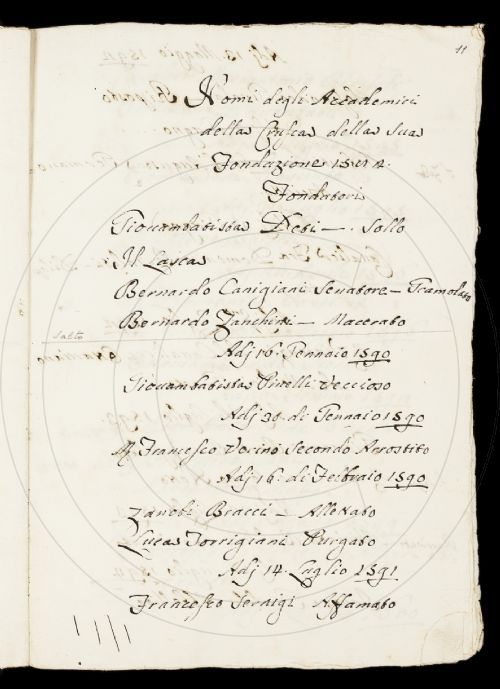 11
Nomi degli Accademici
della Crusca della sua
Fondazione 1584.
Fondatori
Giovambatista Deti — Sollo
Il Lasca
Bernardo Canigiani Senatore — Gramolato
Bernardo Zanchini — Macerato
Adj 16. Gennaio 1590
Giovambatista Pinelli Veccioso
Adj 30. di Gennaio 1590
Francesco Vecino Secondo Arrostito
Adj 16. di Febbraio 1590
Zanobi Bracci — Allettato
Lucas Torrigiani Purgato
Adj 14. Luglio 1591
Francesco Sernigi Affamato